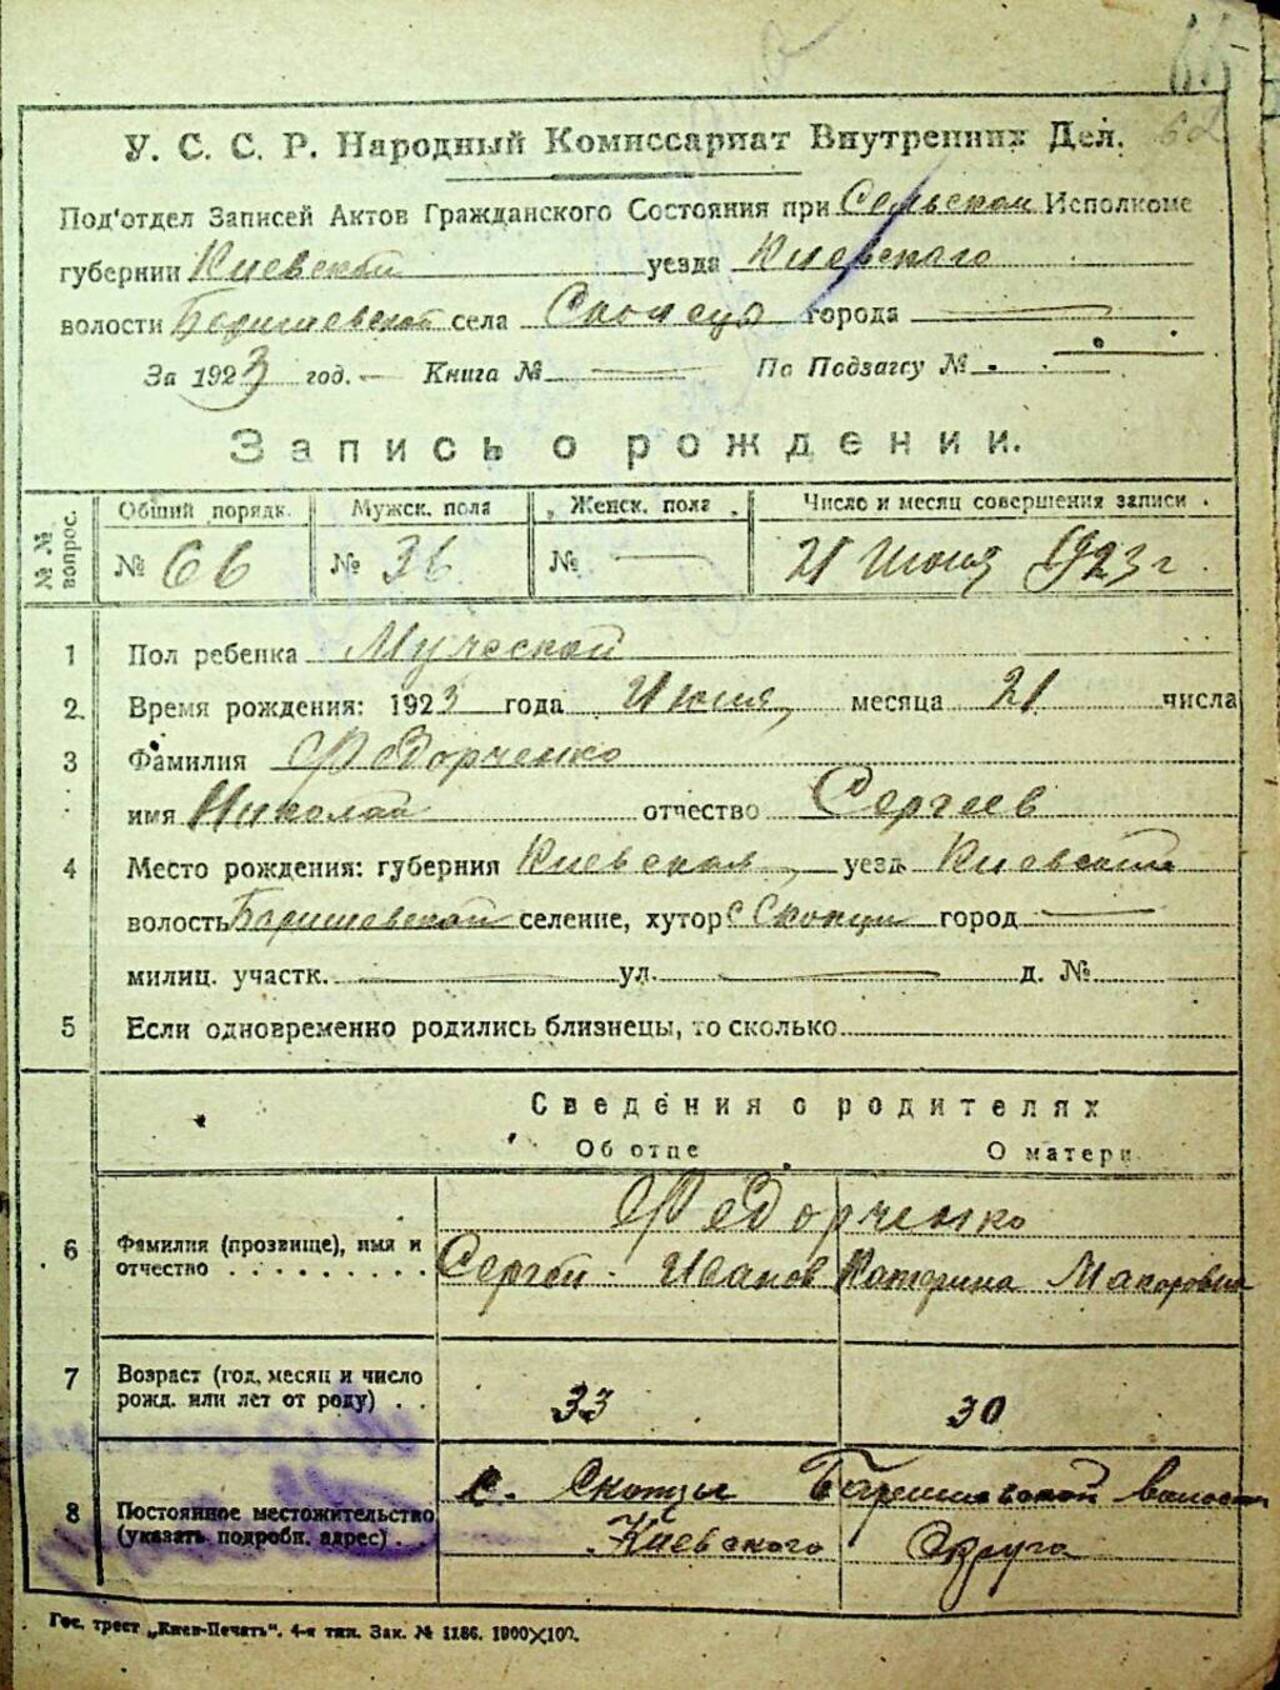 У. С. С. Р. Народный Комиссариат Внутренних Дел.
Под'отдел Записей Актов Гражданского Состояния при Сельском Исполкоме
губернии Киевской уезда Киевского
волости Баришевской села Скопцы города —
За 1923 год.— Книга № — По Подзагсу № —
Запись о рождении.
№№ вопрос. Общий порядк. Мужск. пола Женск. пола Число и месяц совершения записи
№ 66 № 36 № — 21 Июня 1923 г.
1 Пол ребенка Мужской
2 Время рождения: 1923 года Июня, месяца 21 числа
3 Фамилия Федорченко
имя Николай отчество Сергеев
4 Место рождения: губерния Киевская, уезд Киевский
волость Баришевской селение, хутор с Скопцы город —
милиц. участк. — ул. — д. №
5 Если одновременно родились близнецы, то сколько
Сведения о родителях
Об отце О матери
Федорченко
6 Фамилия (прозвище), имя и
отчество Сергей Иванов Катерина Макаровна
7 Возраст (год, месяц и число
рожд. или лет от роду) 33 30
с. Скопцы Баришевской волости
8 Постоянное местожительство
(указать подробн. адрес) Киевского Округа
Гос. трест „Киев-Печать“. 4-я тип. Зак. № 1186. 1000×100.